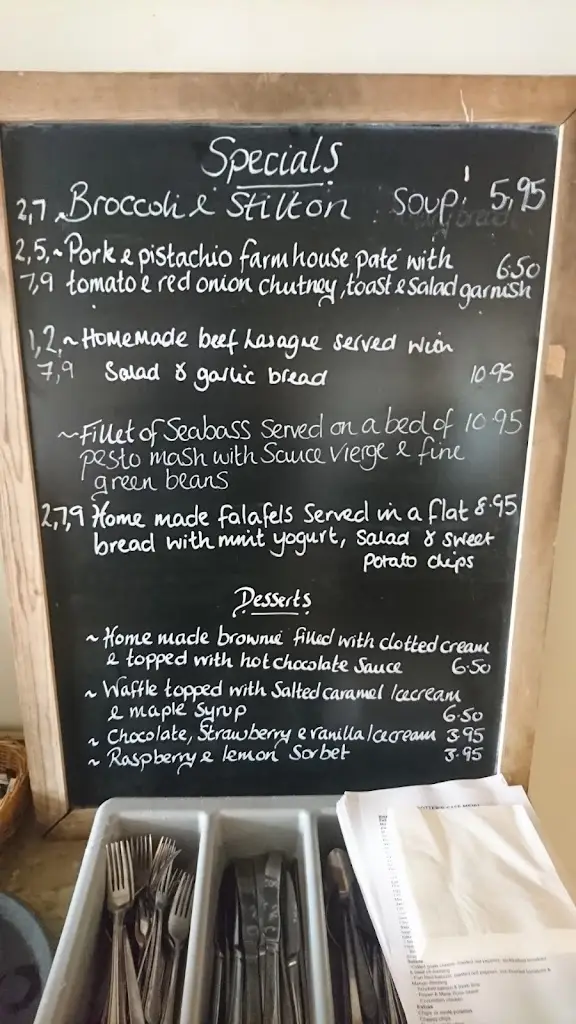 Specials
2,7 ~ Broccoli & Stilton Soup 5,95
2,5, ~ Pork & pistachio farmhouse paté with 6.50
7,9 tomato & red onion chutney, toast & salad garnish
1,2, ~ Homemade beef Lasagne served with
7,9 Salad & garlic bread 10.95
~ Fillet of Seabass Served on a bed of 10.95
pesto mash with Sauce Vierge & fine
green beans
2,7,9 Home made falafels Served in a flat 8.95
bread with mint yogurt, Salad & sweet
potato chips
Desserts
~ Home made brownie filled with clotted cream
& topped with hot chocolate Sauce 6.50
~ Waffle topped with Salted caramel Icecream
& maple Syrup 6.50
~ Chocolate, Strawberry & vanilla Icecream 3.95
~ Raspberry & lemon Sorbet 3.95